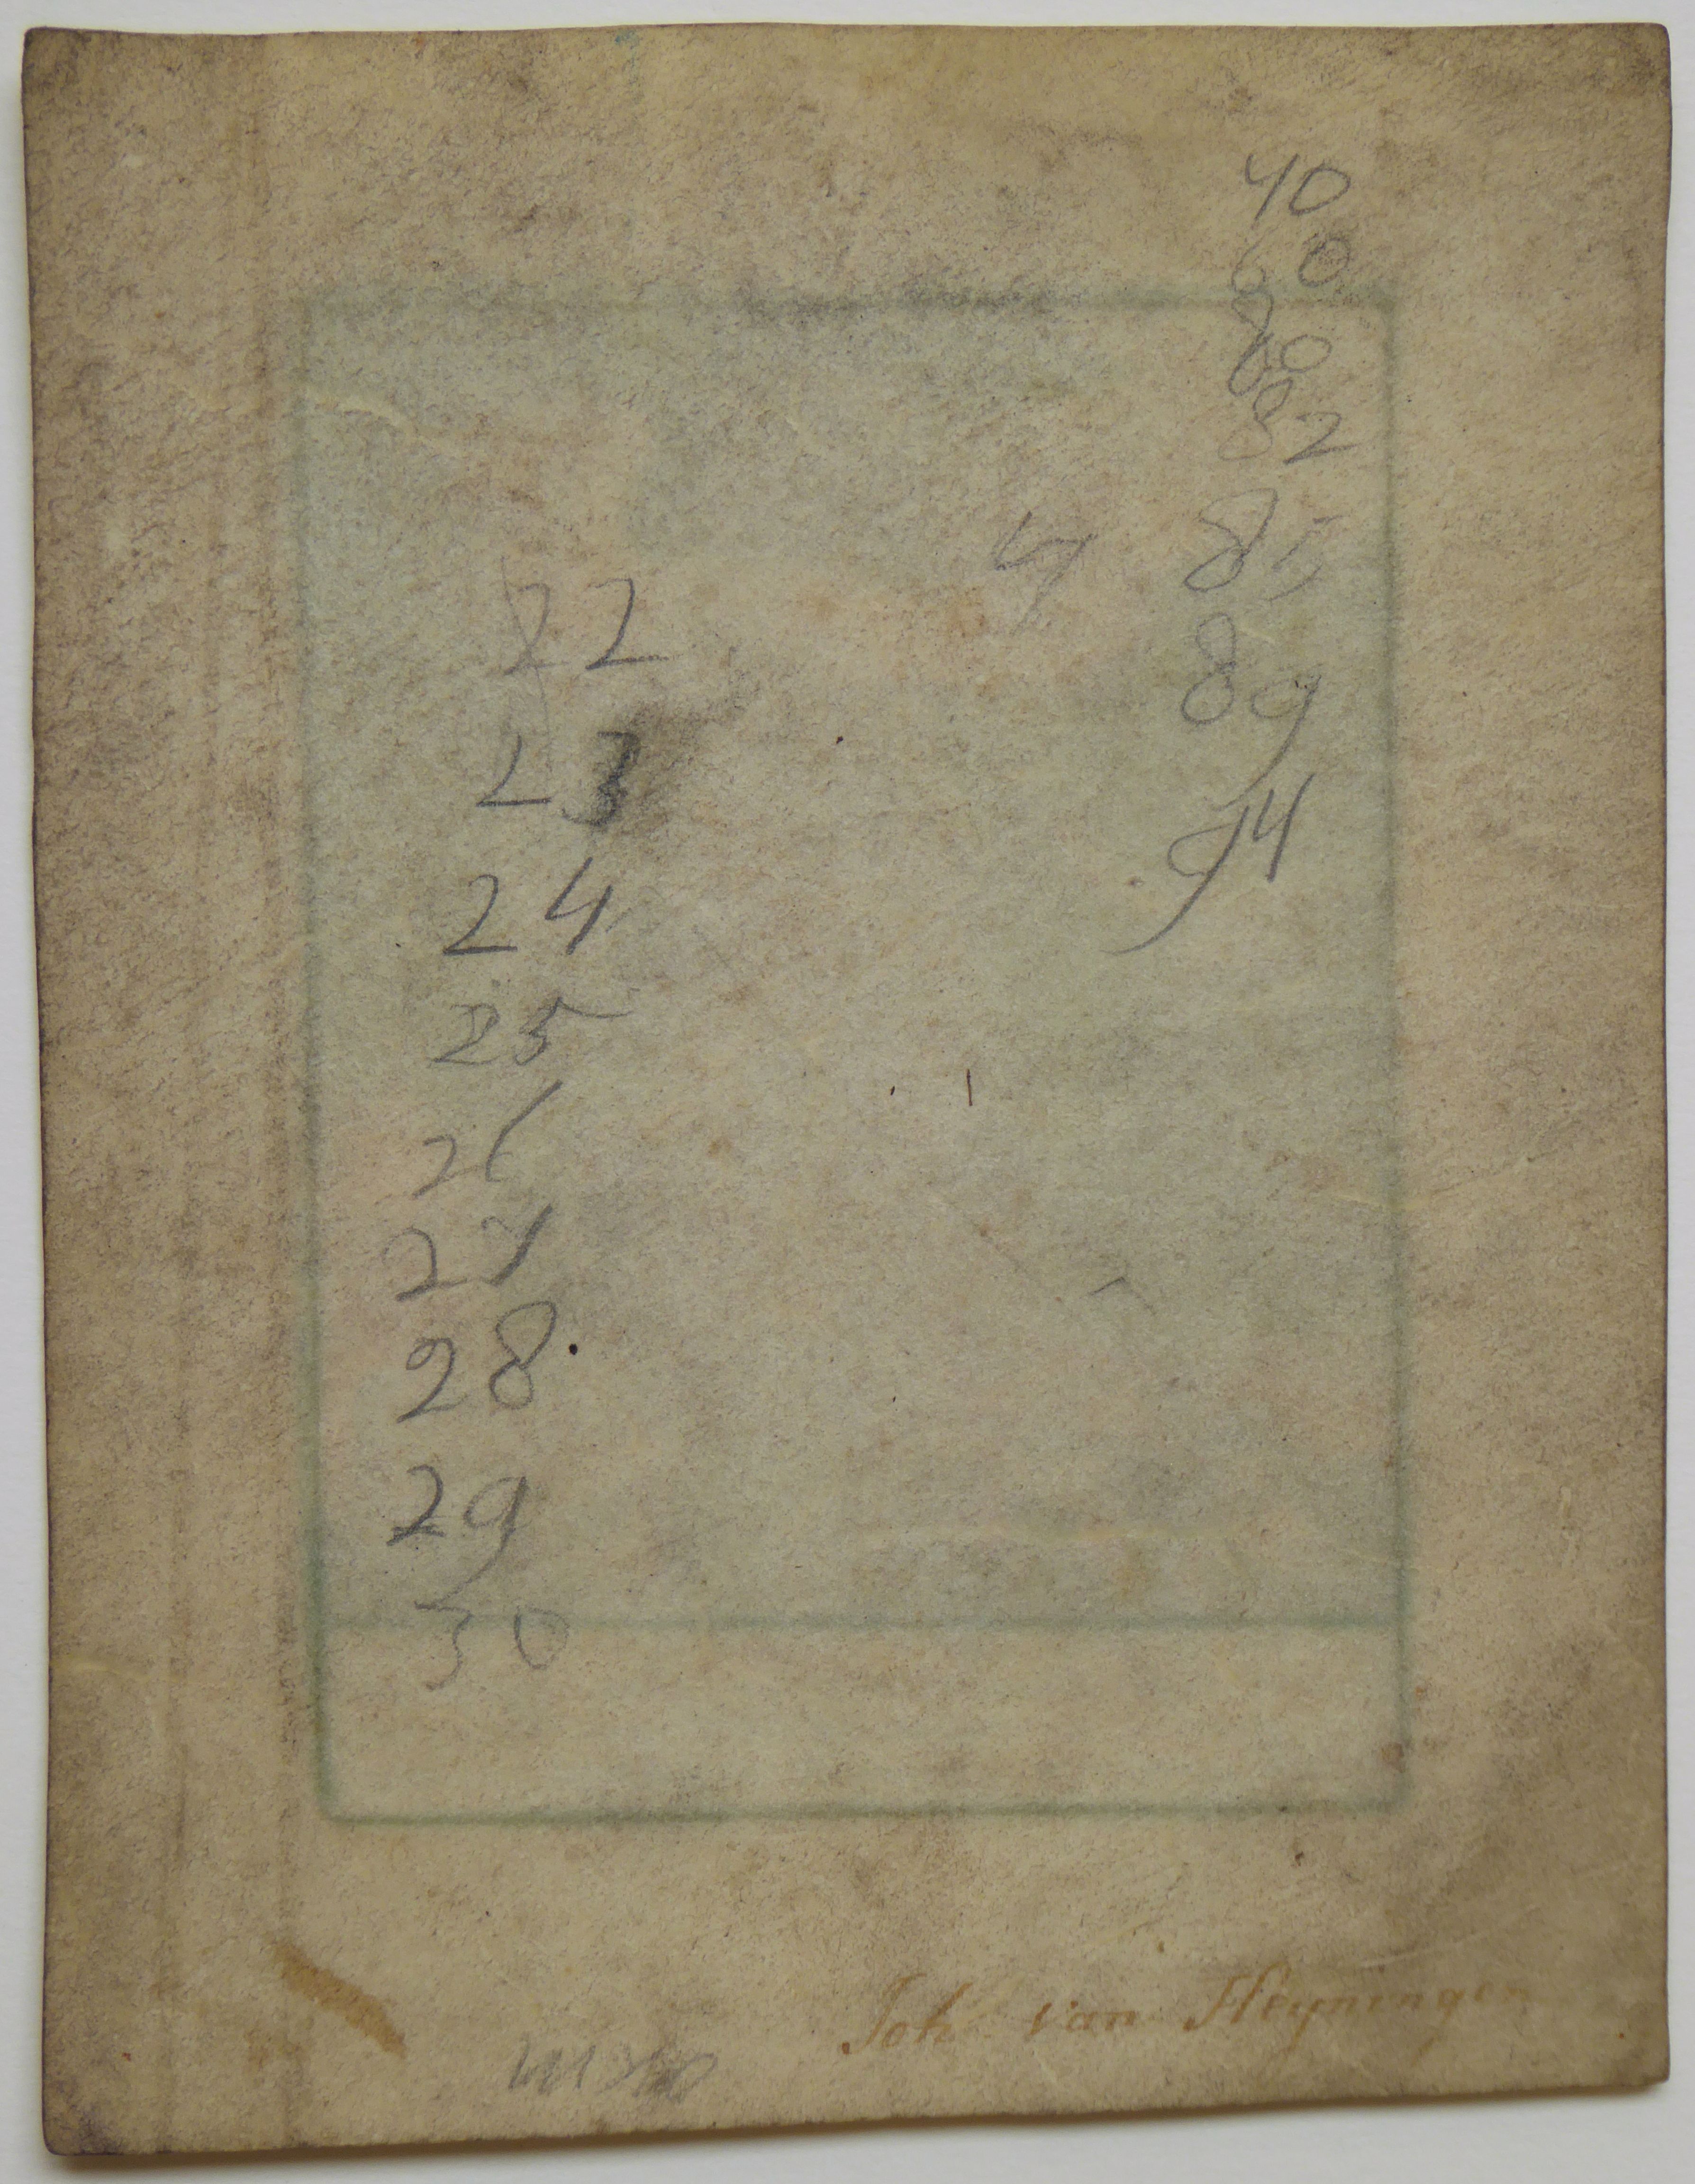 40
60
80
82
85
89
94
22
23
24
25
26
27
28
29
30
Joh. van Heyningen